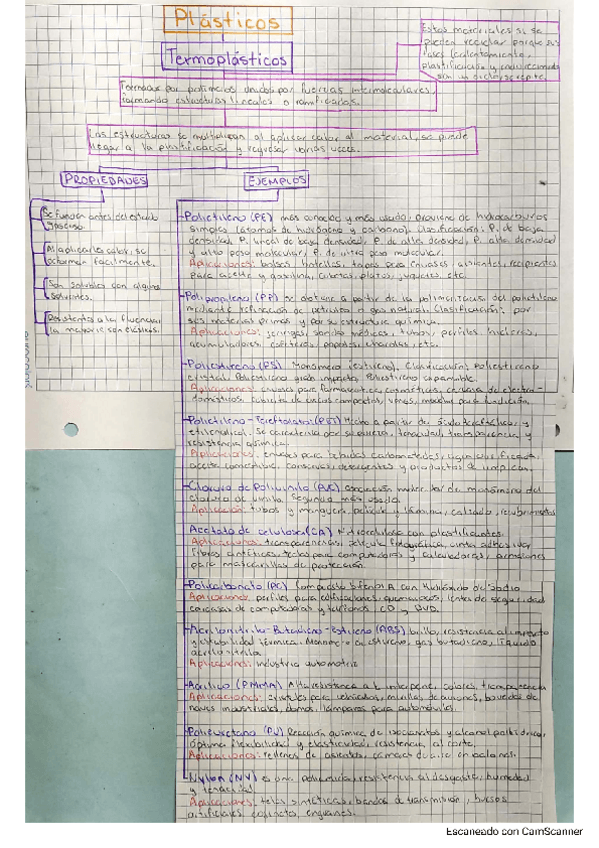 Plásticos
Termoplásticos
Estos materiales si se
pueden reciclar porque sus
fases (calentamiento,
plastificación y endurecimiento
son un ciclo repente.
Formados por polímeros unidos por fuerzas intermoleculares,
formando estructuras lineales o ramificadas.
Las estructuras se multiplican al aplicar calor al material, se puede
llegar a la plastificación y regresar varias veces.
PROPIEDADES
Se funden antes del estado
gaseoso.
Al aplicarles calor, se
deforman facilmente.
Son solubles con algunos
solventes.
Resistentes a la fluencia,
la mayoría con elásticos.
EJEMPLOS
Polietileno (PE) más conocido y más usado. Proviene de hidrocarburos
simples (átomos de hidrógeno y carbono). Clasificación: P. de baja
densidad, P. lineal de baja densidad, P. de alta densidad, P. alta densidad
y alto peso molecular, P. de ultra peso molecular.
Aplicaciones: bolsas, botellas, tapas para envases, aislantes, recipientes
para aceite y gasolina, cubetas, platos, juguetes, etc.
Polipropileno (PP) Se obtiene a partir de la polimerización del
mediante refinación de petróleo o gas natural. Clasificación: por
sus materias primas y por su estructura química.
Aplicaciones: jeringas, sondas médicas, tubos, perfiles, hieleras,
acumuladores, cafeteras, popotes, charolas, etc.
Poliestireno (PS) Monómero (estireno). Clasificación: Poliestireno
cristal, Poliestireno grado impacto, Poliestireno expansible.
Aplicaciones: envases para farmacéutica, cosméticos, carcasa de electro-
domésticos, cubierta de discos compactos, moldes para fundición.
Polietileno-Tereftalato (PET) Hecho a partir de ácido tereftálico y
etilenglicol. Se caracteriza por su pureza, tenacidad, transparencia y
resistencia química.
Aplicaciones: envases para bebidas carbonatadas, agua purificada,
aceite comestible, conservas, detergentes y productos de limpieza.
Cloruro de Polivinilo (PVC) asociación molecular de monómero del
cloruro de vinilo. Segundo más usado.
Aplicación: tubos y manguera, película y lámina, calzado, recubrimientos
Acetato de celulosa (CA) Nitrocelulosa con plastificantes.
Aplicaciones: transparencias, película fotográfica, cinta adhesiva,
fibras sintéticas, teclas para computadoras y calculadoras, armazones
para mascarillas de protección.
Policarbonato (PC) Compuesto bifenol A con hidróxido de sodio
Aplicaciones: perfiles para edificaciones, lentes de seguridad
carcasas de computadoras y teléfonos, CD y DVD.
Acrilonitrilo-Butadieno-Estireno (ABS) brillo, resistencia al impacto
y estabilidad térmica. Monómero al estireno, gas butadieno, líquido
acrilonitrilo.
Aplicaciones: industria automotriz
Acrílico (PMMA) Alta resistencia a la intemperie, colores, transparencia
Aplicaciones: cristales para vehículos, de aviones, bóvedas de
naves industriales, domos, lámparas para automóviles.
Poliuretano (PU) Reacción química de isocianatos y alcohol polihídrico,
óptima flexibilidad y elasticidad, resistencia al corte.
Aplicaciones: rellenos de asientos, cámaras de aire en balones.
Nylon (NY) es una poliamida, resistencia al desgaste, humedad
y tenacidad.
Aplicaciones: telas sintéticas, bandas de transmisión, huesos
artificiales, engranes.
Escaneado con CamScanner